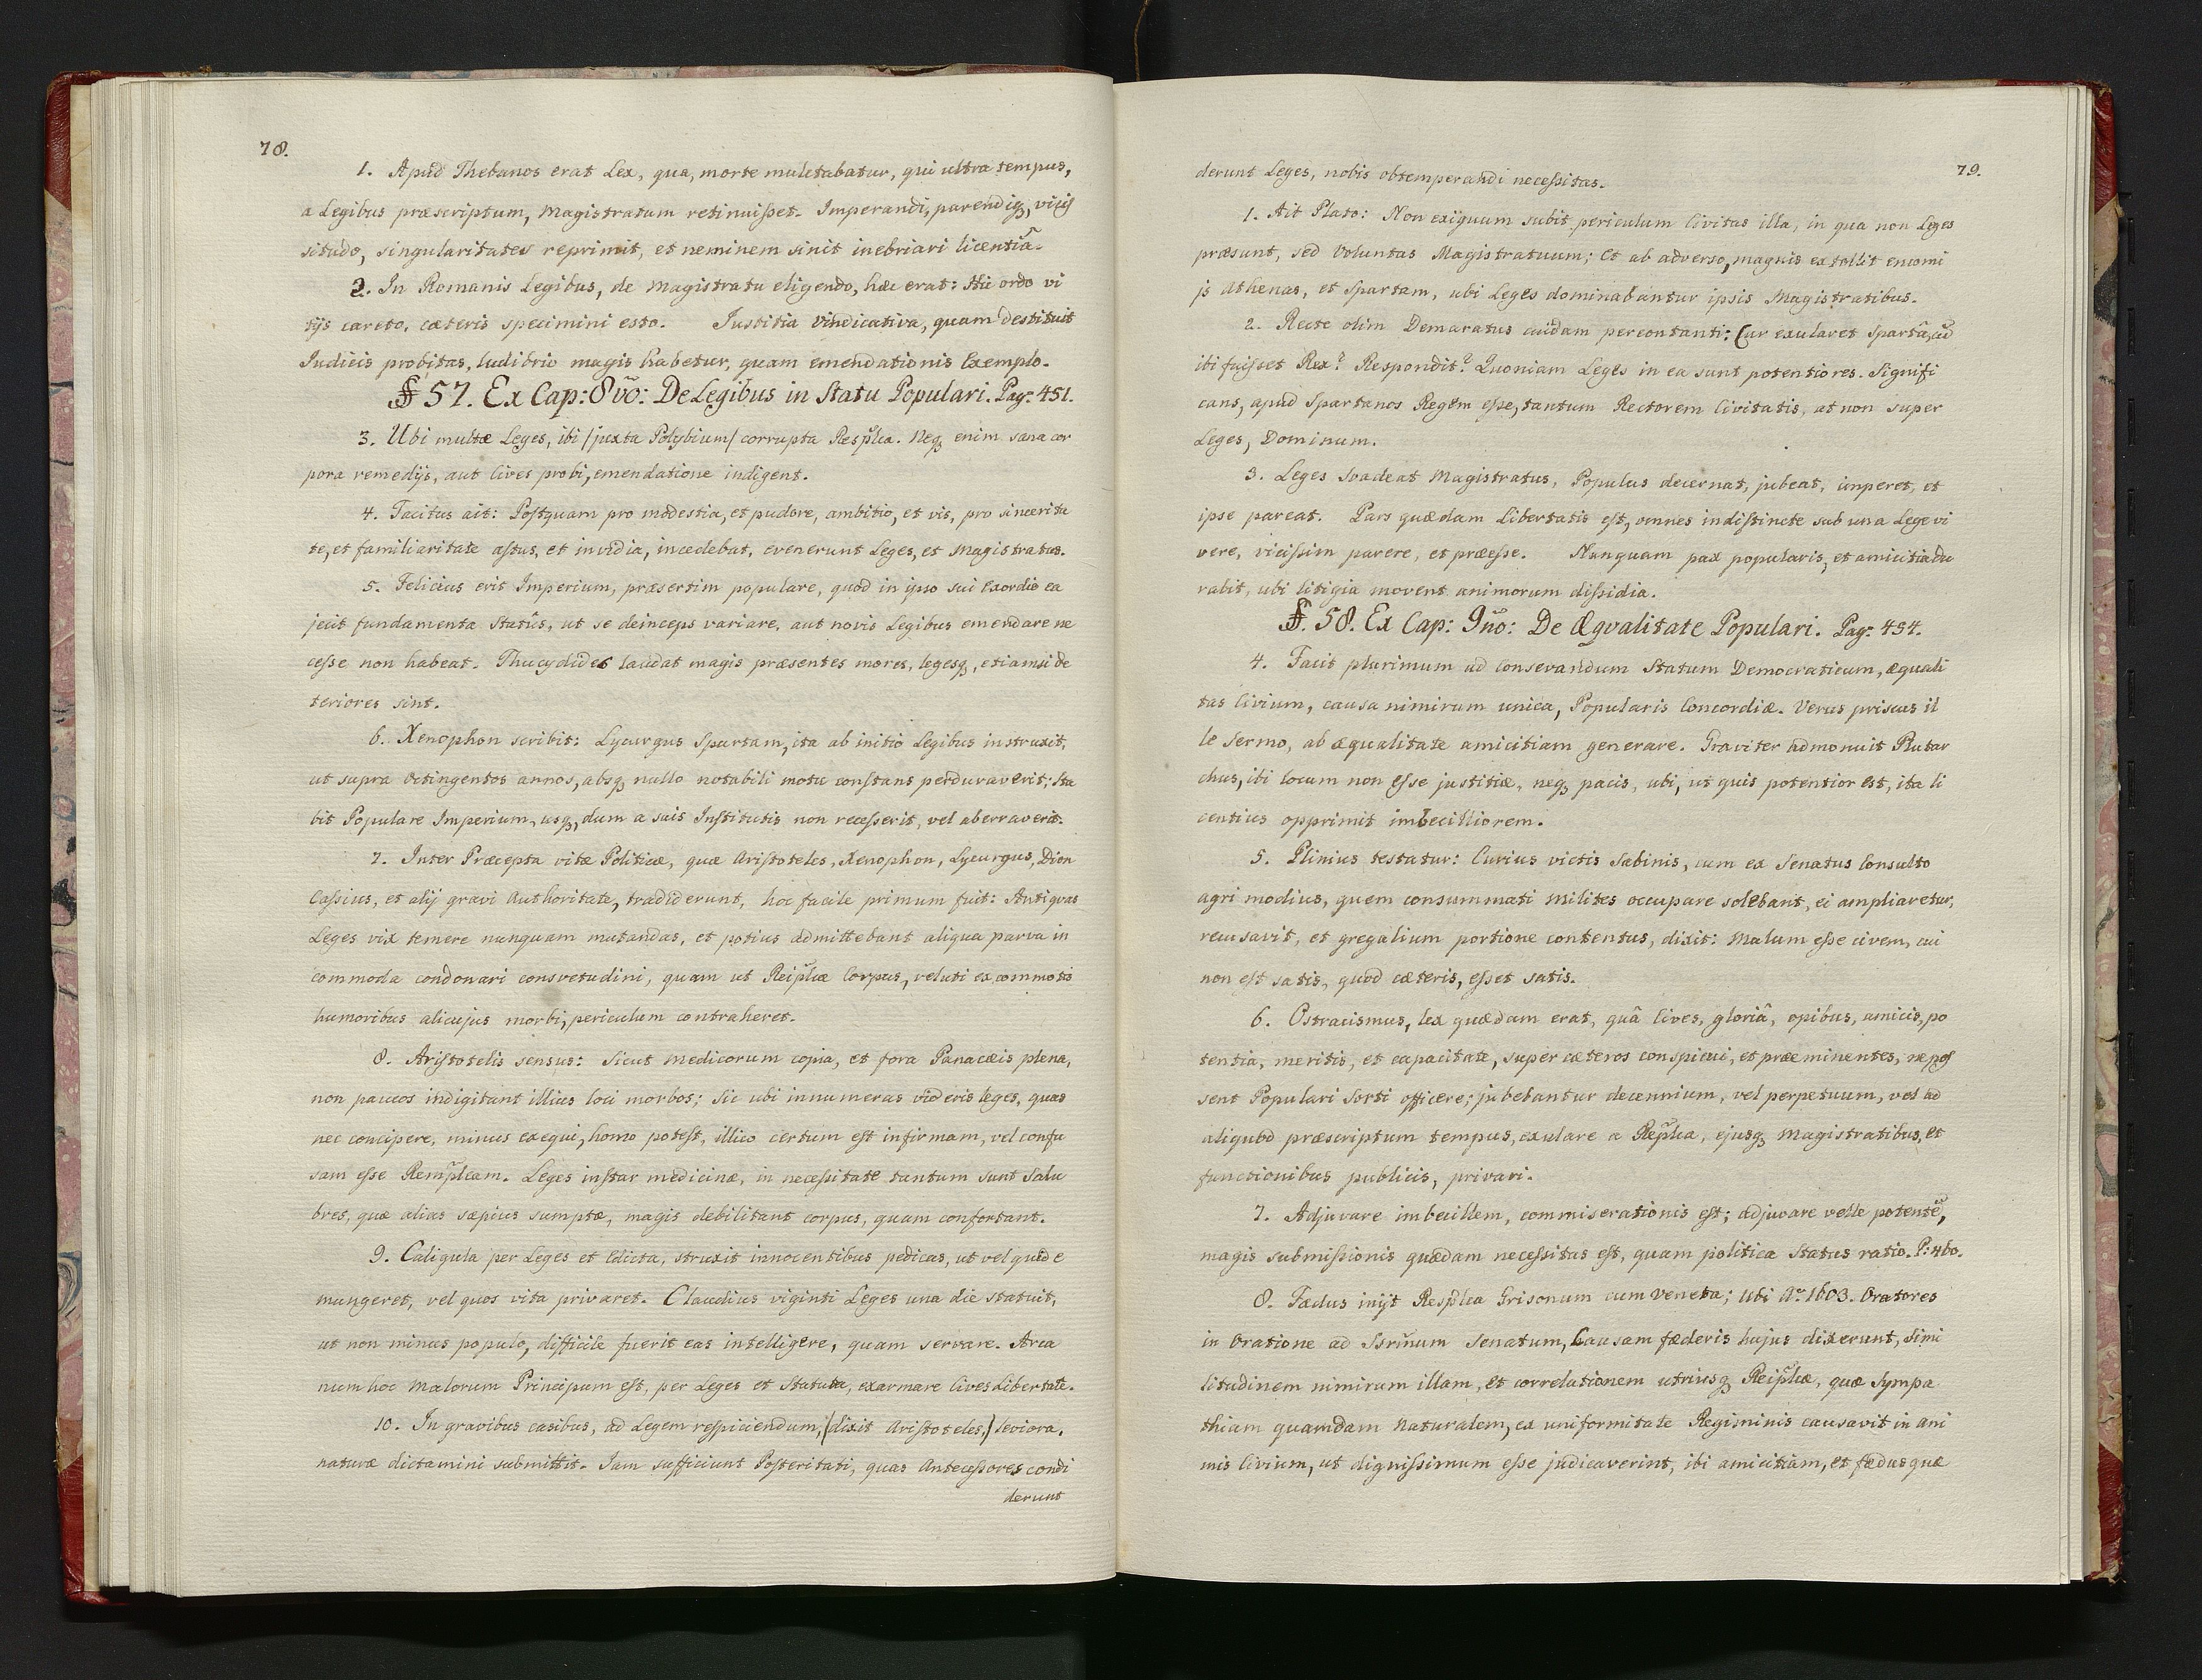 78.
1. Apud Thebanos erat Lex, qua, morte mulctabatur, qui ultra tempus,
a Legibus præscriptum, Magistratum retinuisset. Imperandi, parendiq, vicis
situdo, singularitates reprimit, et neminem sinit inebriari licentiâ.
2. In Romanis Legibus, de Magistratu eligendo, hæc erat: Hic ordo vi
tijs careto, cæteris specimini esto. Justitia Vindicativa, quam destituit
Judicis probitas, ludibrio magis habetur, quam emendationis Exemplo.
§ 57. Ex Cap: 8võ: De Legibus in Statu Populari. Pag: 451.
3. Ubi multæ Leges, ibi /juxta Polybium/ corrupta Resp͠lca. Neq enim sana cor
pora remedijs, aut Cives probi, emendatione indigent.
4. Tacitus ait: Postquam pro modestia, et pudore, ambitio, et vis, pro sincerita
te, et familiaritate astus, et invidia, incedebat, evenerunt Leges, et Magistratus.
5. Felicius erit Imperium, præsertim populare, quod in ipso sui Exordio ea
jecit fundamenta Statûs, ut se deinceps variare, aut novis Legibus emendare ne
cesse non habeat. Thucydides laudat magis præsentes mores, legesq, etiamsi de
teriores sint.
6. Xenophon scribit: Lycurgus Spartam, ita ab initio Legibus instruxit,
ut supra Octingentos annos, absq nullo notabili motu constans perduraverit; Sta
bit Populare Imperium, usq, dum a suis Institutis non recesserit, vel aberraverit.
7. Inter Præcepta vitæ Politicæ, quæ Aristoteles, Xenophon, Lycurgus, Dion
Cassius, et alij gravi Authoritate, tradiderunt, hoc facile primum fuit: Antiquas
Leges vix temere nunquam mutandas, et potius admittebant aliqua parva in
commoda condonari consvetudini, quam ut Reip͠lcæ Corpus, veluti ex commotis
humoribus alicujus morbi, periculum contraheret.
8. Aristotelis sensus: Sicut Medicorum copia, et fora Panacæis plena,
non paucos indigitant illius loci morbos; Sic ubi innumeras videris leges, quas
nec concipere, minus exequi, homo potest, illico certum est infirmam, vel confu
sam esse Remp͠lcam. Leges instar medicinæ, in necessitate tantum sunt Salu
bres, quæ alias sæpius sumptæ, magis debilitant corpus, quam confortant.
9. Caligula per Leges et Edicta, struxit innocentibus pedicas, ut vel quid e
mungeret, vel quos vita privaret. Claudius viginti Leges una die statuit,
ut non minus populo, difficile fuerit eas intelligere, quam servare. Arca
num hoc Malorum Principum est, per Leges et Statuta, exarmare Cives Libertate.
10. In gravibus casibus, ad Legem respiciendum, /dixit Aristoteles,/ leviora,
naturæ dictamini submittit. Jam sufficiunt Posteritati, quas Antecessores condi
derunt
79.
derunt Leges, nobis obtemperandi necessitas.
1. Ait Plato: Non exiguum subit periculum Civitas illa, in qua non Leges
præsunt, sed Voluntas Magistratuum; Et ab adverso, magnis extollit encomi
js Athenas, et Spartam, ubi Leges dominabantur ipsis Magistratibus.
2. Recte olim Demaratus cuidam percontanti: Cur exularet Spartâ, cũ
ibi fuisset Rex? Respondit? Quoniam Leges in ea sunt potentiores. Signifi
cans, apud Spartanos Regem esse, tantum Rectorem Civitatis, at non super
Leges, Dominum.
3. Leges Svadeat Magistratus, Populus decernat, jubeat, imperet, et
ipse pareat. Pars quædam Libertatis est, omnes indistincte sub una Lege vi
vere, vicissim parere, et præesse. Nunquam pax popularis, et amicitia du
rabit, ubi litigia movent animorum dissidia.
§. 58. Ex Cap: 9nõ: De Æqvalitate Populari. Pag: 454.
4. Facit plurimum ad consevandum Statum Democraticum, æquali
tas Civium, causa nimirum unica, Popularis Concordiæ. Verus priscus il
le Sermo, ab æqualitate amicitiam generare. Graviter admonuit Plutar
chus, ibi locum non esse justitiæ, neq pacis, ubi, ut quis potentior est, ita li
centius opprimit imbecilliorem.
5. Plinius testatur: Curius victis Sabinis, cum ex Senatus Consulto
agri modius, quem consummati Milites occupare solebant, ei ampliaretur,
recusavit, et gregalium portione contentus, dixit: Malum esse civem, cui
non est satis, quod cæteris, esset satis.
6. Ostracismus, lex quædam erat, quâ Cives, gloriâ, opibus, amicis, po
tentia, meritis, et capacitate, super cæteros conspicui, et præeminentes, ne pos
sent Populari Sorti officere; jubebantur decennium, vel perpetuum, vel ad
aliquod præscriptum tempus, exulare a Rep͠lca, ejusq Magistratibus, et
functionibus publicis, privari.
7. Adjuvare imbecillem, commiserationis est; adjuvare velle potentẽ,
magis submissionis quædam necessitas est, quam politica Status ratio. P: 460.
8. Fædus inijt Resp͠lca Grisonum cum Veneta; ubi Aº 1603. Oratores
in Oratione ad Ser͠num Senatum, Causam fæderis hujus dixerunt, Simi
litudinem nimirum illam, et correlationem utriusq Reip͠lcæ, quæ Sympa
thiam quamdam Naturalem, ex uniformitate Regiminis causavit in ani
mis Civium, ut dignissimum esse judicaverint, ibi amicitiam, et fædus quæ